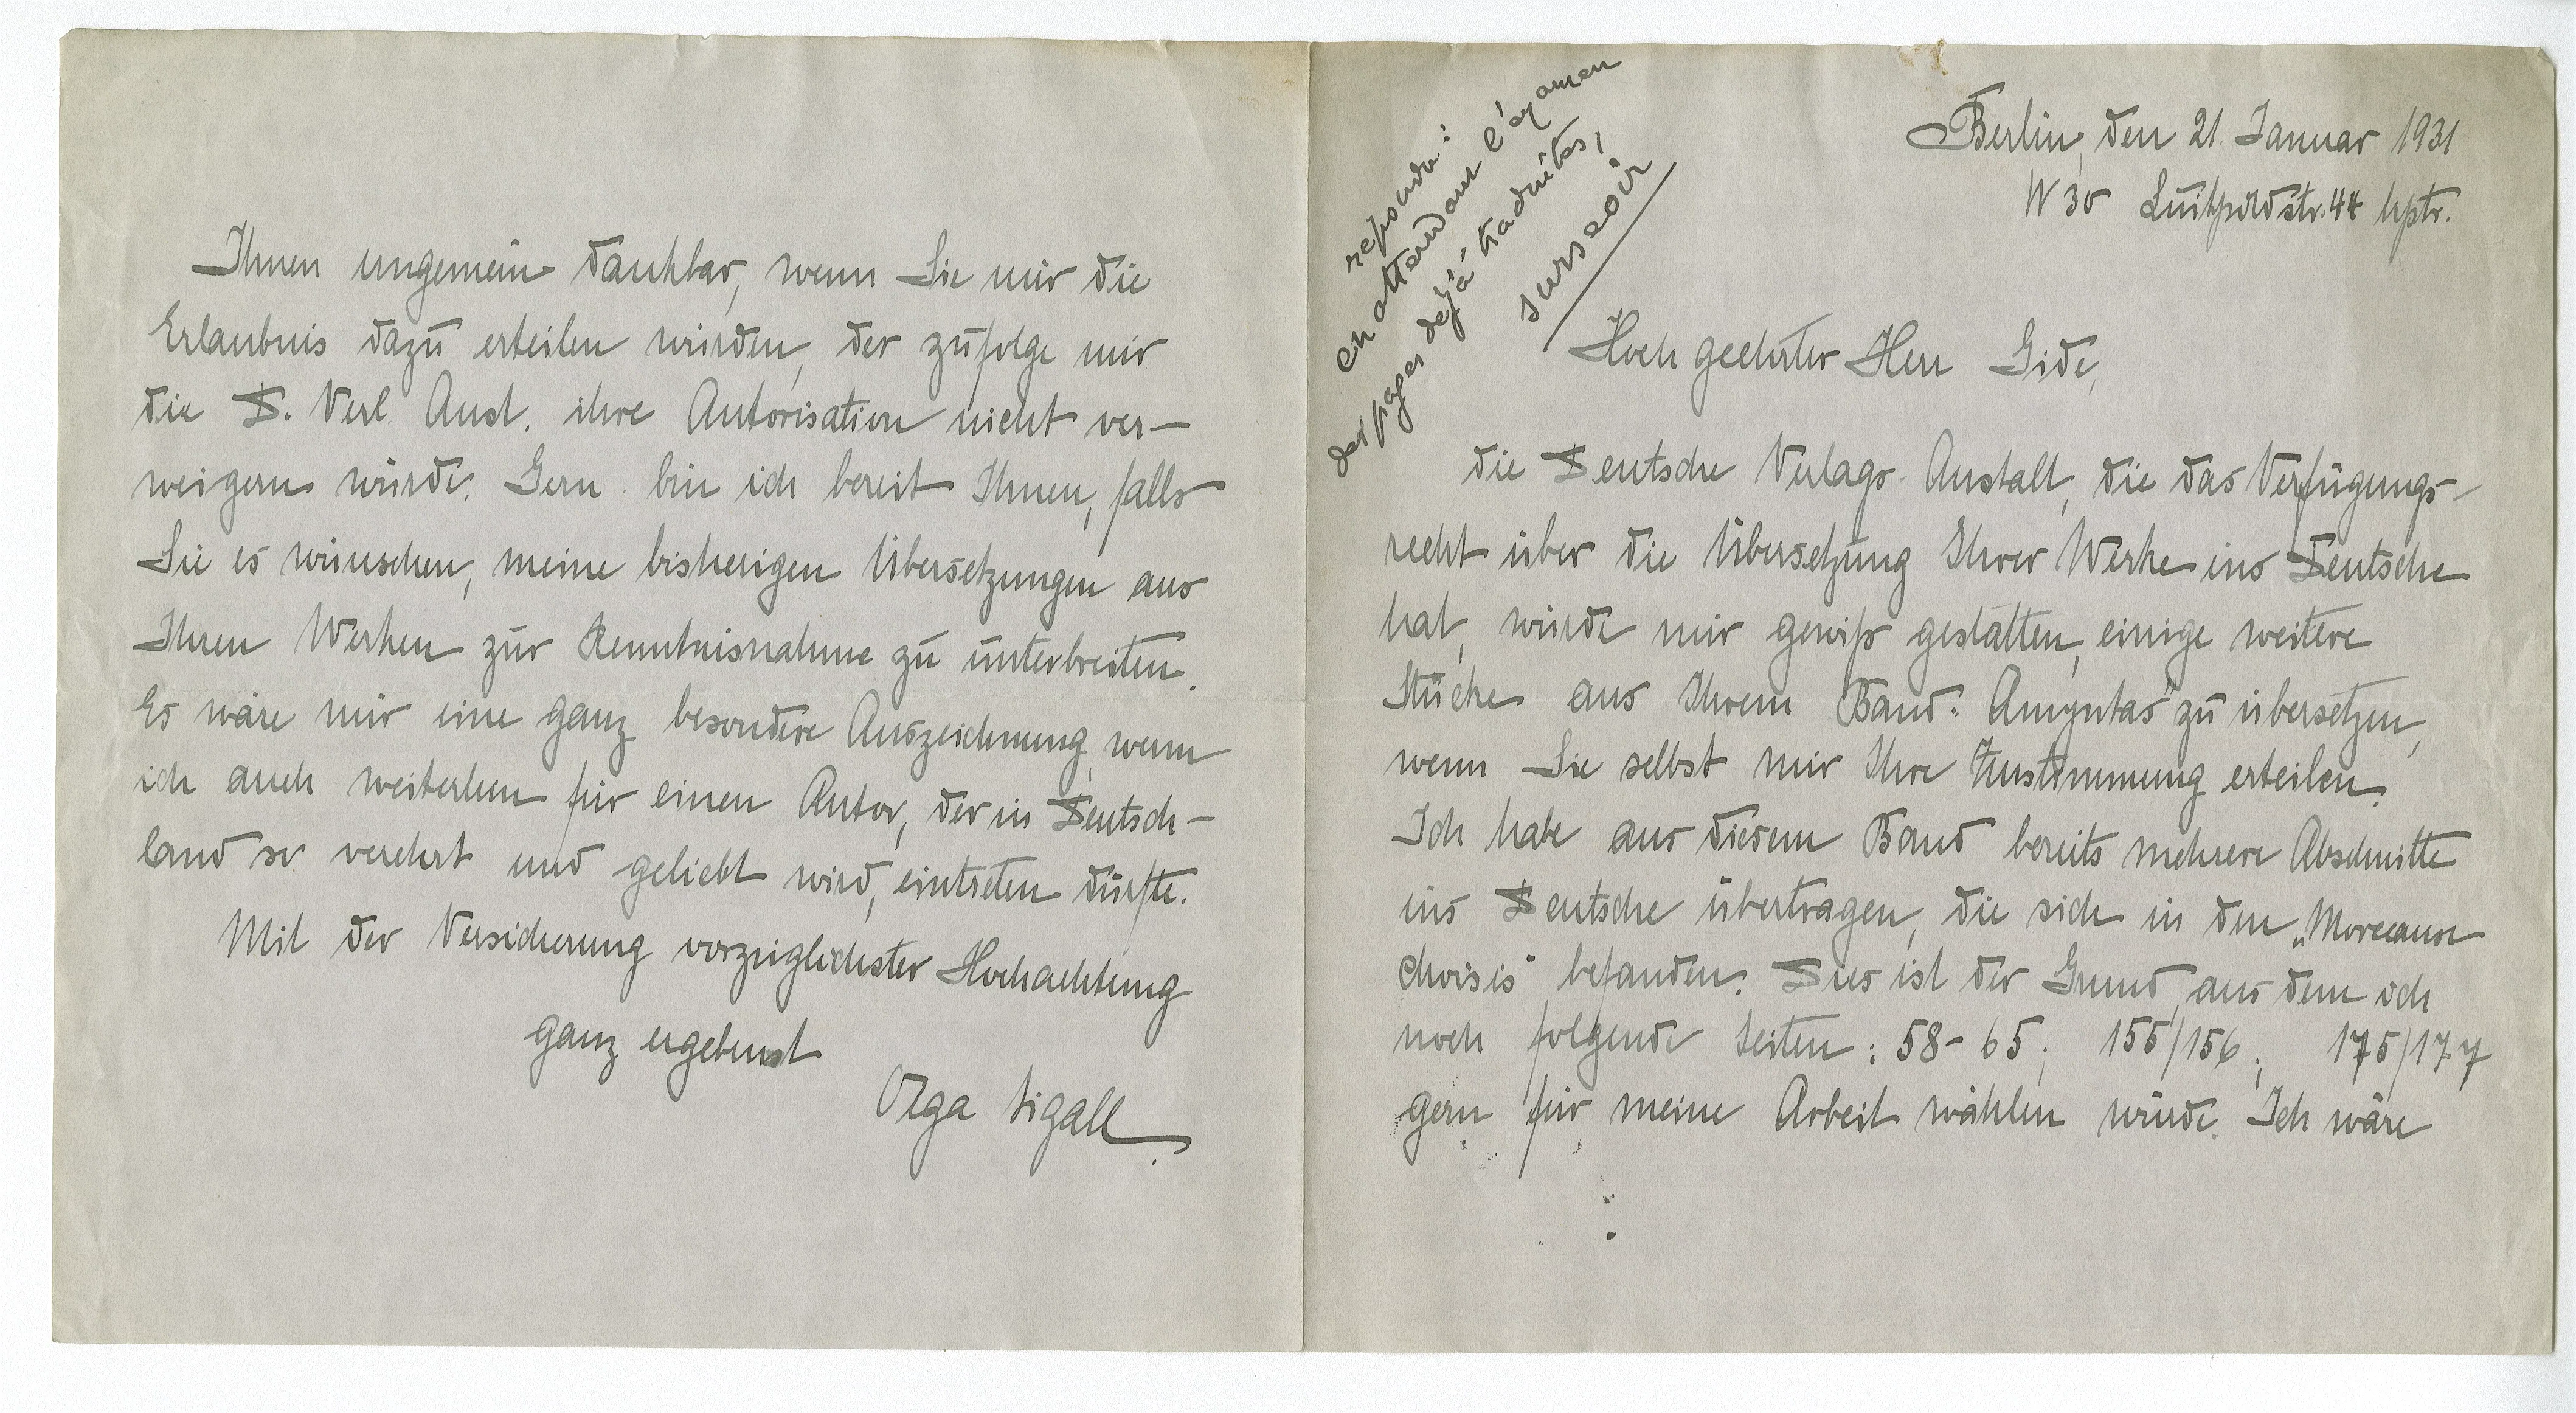 Berlin, den 21. Januar 1931
W 30 Luitpoldstr. 44 hptr.
reponde :
en attendant l'examen
des pages déjà traduites,
surseoir
Hochgeehrter Herr Gide,
die Deutsche Verlags-Anstalt, die das Verfügungs-
recht über die Übersetzung Ihrer Werke ins Deutsche
hat, würde mir gewiß gestatten, einige weitere
Stücke aus Ihrem Band: Amyntas" zu übersetzen,
wenn Sie selbst mir Ihre Zustimmung erteilen.
Ich habe aus diesem Band bereits mehrere Abschnitte
ins Deutsche übertragen, die sich in den „Morceaux
choisis" befanden. Dies ist der Grund, aus dem ich
noch folgende Seiten : 58-65; 155/156; 175/177
gern für meine Arbeit wählen würde. Ich wäre
Ihnen ungemein dankbar, wenn Sie mir die
Erlaubnis dazu erteilen würden, der zufolge mir
die D. Verl. Anst. ihre Autorisation nicht ver-
weigern würde. Gern bin ich bereit Ihnen, falls
Sie es wünschen, meine bisherigen Übersetzungen aus
Ihren Werken zur Kenntnisnahme zu unterbreiten.
Es wäre mir eine ganz besondere Auszeichnung, wenn
ich auch weiterhin für einen Autor, der in Deutsch-
land so verehrt und geliebt wird, eintreten dürfte.
Mit der Versicherung vorzüglichster Hochachtung
ganz ergebenst
Olga Sigall